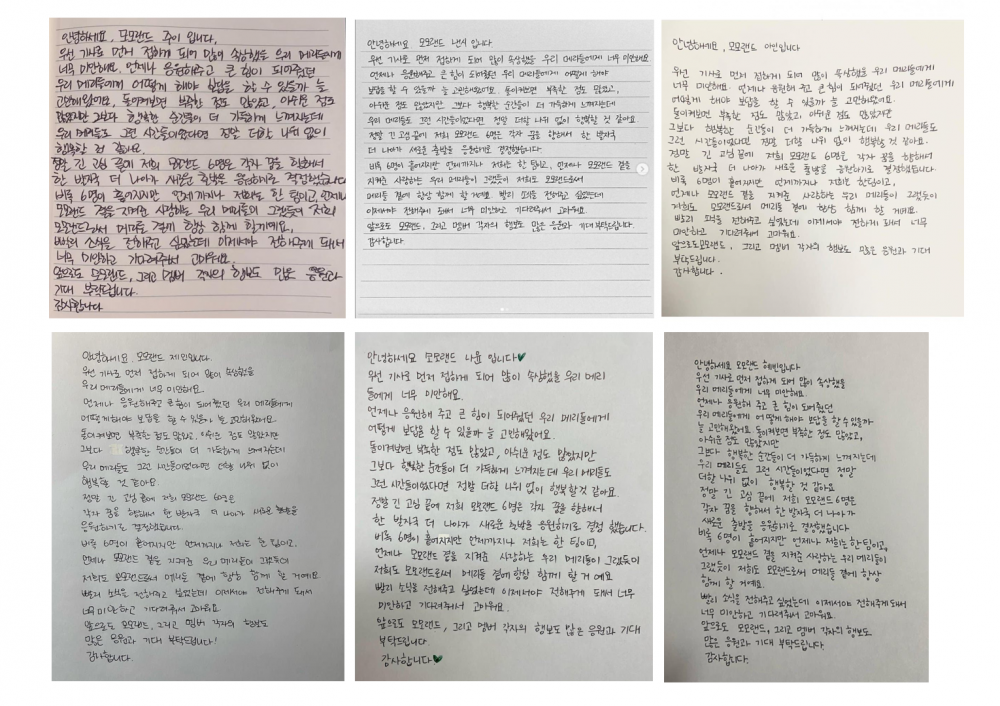 안녕하세요, 모모랜드 주이 입니다.
우선 기사로 먼저 접하게 되어 많이 속상했을 우리 메리들에게
너무 미안해요. 언제나 응원해주고 큰 힘이 되어줬던
우리 메리들에게 어떻게 해야 보답을 할 수 있을까 늘
고민해왔어요. 돌이켜보면 부족한 점도 많았고, 아쉬운 점도
많았지만 그보다 행복한 순간들이 더 가득하게 느껴지는데
우리 메리들도 그런 시간들이었다면 정말 더할 나위 없이
행복할 것 같아요.
정말 긴 고심 끝에 저희 모모랜드 6명은 각자 꿈을 향해서
한 발자국 더 나아가 새로운 출발을 응원하기로 결정했습니다
비록 6명이 흩어지지만 언제까지나 저희는 한 팀이고, 언제나
모모랜드 곁을 지켜준 사랑하는 우리 메리들이 그랬듯이 저희
모모랜드로서 메리들 곁에 항상 함께할거예요.
빨리 소식을 전해주고 싶었는데 이제서야 전해주게 돼서
너무 미안하고 기다려줘서 고마워요.
앞으로도 모모랜드, 그리고 멤버 각자의 행보도 많은 응원과
기대 부탁드립니다.
감사합니다
안녕하세요 모모랜드 낸시 입니다.
우선 기사로 먼저 접하게 되어 많이 속상했을 우리 메리들에게 너무 미안해요
언제나 응원해주고 큰 힘이 되어줬던 우리 메리들에게 어떻게 해야
보답을 할 수 있을까 늘 고민해왔어요. 돌이켜보면 부족한 점도 많았고,
아쉬운 점도 많았지만 그보다 행복한 순간들이 더 가득하게 느껴지는데
우리 메리들도 그런 시간들이었다면 정말 더할 나위 없이 행복할 것 같아요.
정말 긴 고심 끝에 저희 모모랜드 6명은 각자 꿈을 향해서 한 발자국
더 나아가 새로운 출발을 응원하기로 결정했습니다.
비록 6명이 흩어지지만 언제까지나 저희는 한 팀이고, 언제나 모모랜드 곁을
지켜준 사랑하는 우리 메리들이 그랬듯이 저희도 모모랜드로서
메리들 곁에 항상 함께 할 거예요. 빨리 소식을 전해주고 싶었는데
이제서야 전해주게 돼서 너무 미안하고 기다려줘서 고마워요
앞으로도 모모랜드, 그리고 멤버 각자의 행보도 많은 응원과 기대 부탁드립니다.
감사합니다.
안녕하세요, 모모랜드 아인입니다
우선 기사로 먼저 접하게 되어 많이 속상했을 우리 메리들에게
너무 미안해요. 언제나 응원해주고 큰 힘이 되어줬던 우리 메리들에게
어떻게 해야 보답을 할 수 있을까 늘 고민해왔어요.
돌이켜보면 부족한 점도 많았고, 아쉬운 점도 많았지만
그보다 행복한 순간들이 더 가득하게 느껴지는데 우리 메리들도
그런 시간들이었다면 정말 더할 나위 없이 행복할 것 같아요.
정말 긴 고심 끝에 저희 모모랜드 6명은 각자 꿈을 향해서
한 발자국 더 나아가 새로운 출발을 응원하기로 결정했습니다
비록 6명이 흩어지지만 언제까지나 저희는 한팀이고,
언제나 모모랜드 곁을 지켜준 사랑하는 우리 메리들이 그랬듯이
저희도 모모랜드로서 메리들 곁에 항상 함께 할 거예요.
빨리 소식을 전해주고 싶었는데 이제서야 전하게 돼서 너무
미안하고 기다려줘서 고마워요.
앞으로도 모모랜드, 그리고 멤버 각자의 행보도 많은 응원과 기대
부탁드립니다.
감사합니다.
안녕하세요. 모모랜드 제인입니다.
우선 기사로 먼저 접하게 되어 많이 속상했을
우리 메리들에게 너무 미안해요.
언제나 응원해주고 큰 힘이 되어줬던 우리 메리들에게
어떻게해야 보답을 할 수 있을까 늘 고민해왔어요.
돌이켜보면 부족한 점도 많았고, 아쉬운 점도 많았지만
그보다 행복한 순간들이 더 가득하게 느껴지는데
우리 메리들도 그런 시간들이었다면 더할 나위 없이
행복할 것 같아요.
정말 긴 고심 끝에 저희 모모랜드 6명은
각자 꿈을 향해서 한 발자국 더 나아가 새로운 출발을
응원하기로 결정했습니다.
비록 6명이 흩어지지만 언제까지나 저희는 한 팀이고.
언제나 모모랜드 곁을 지켜준 우리 메리들이 그랬듯이
저희도 모모랜드로서 메리들 곁에 항상 함께 할 거예요
빨리 소식을 전해주고 싶었는데 이제서야 전해주게 돼서
너무 미안하고 기다려줘서 고마워요.
앞으로도 모모랜드, 그리고 멤버 각자의 행보도
많은 응원과 기대 부탁드립니다!
감사합니다.
안녕하세요 모모랜드 나윤 입니다💚
우선 기사로 먼저 접하게 되어 많이 속상했을 우리 메리
들에게 너무 미안해요.
언제나 응원해 주고 큰 힘이 되어줬던 우리 메리들에게
어떻게 보답을 할 수 있을까 늘 고민해왔어요.
돌이켜보면 부족한 점도 많았고, 아쉬운 점도 많았지만
그보다 행복한 순간들이 더 가득하게 느껴지는데 우리 메리들도
그런 시간들이었다면 정말 더할 나위 없이 행복할것 같아요.
정말 긴 고심 끝에 저희 모모랜드 6명은 각자 꿈을 향해서
한 발자국 더 나아가 새로운 출발을 응원하기로 결정 했습니다.
비록 6명이 흩어지지만 언제까지나 저희는 한 팀이고,
언제나 모모랜드 곁을 지켜준 사랑하는 우리 메리들이 그랬듯이
저희도 모모랜드로써 메리들 곁에 항상 함께 할 거 예요
빨리 소식을 전해주고 싶었는데 이제서야 전해주게 돼서 너무
미안하고 기다려줘서 고마워요.
앞으로도 모모랜드, 그리고 멤버 각자의 행보도 많은 응원과 기대
부탁드립니다
감사합니다💚
안녕하세요 모모랜드 혜빈입니다
우선 기사로 먼저 접하게 되어 많이 속상했을
우리 메리들에게 너무 미안해요.
언제나 응원해 주고 큰 힘이 되어줬던
우리 메리들에게 어떻게 해야 보답을 할 수 있을까
늘 고민해왔어요. 돌이켜보면 부족한 점도 많았고,
아쉬운 점도 많았지만
그보다 행복한 순간들이 더 가득하게 느껴지는데
우리 메리들도 그런 시간들이었다면 정말
더할 나위 없이 행복할 것 같아요
정말 긴 고심 끝에 저희 모모랜드 6명은
각자 꿈을 향해서 한 발자국 더 나아가
새로운 출발을 응원하기로 결정했습니다
비록 6명이 흩어지지만 언제나 저희는 한 팀이고,
언제나 모모랜드 곁을 지켜준 사랑하는 우리 메리들이
그랬듯이 저희도 모모랜드로서 메리들 곁에 항상
함께 할 거예요.
빨리 소식을 전해주고 싶었는데 이제서야 전해주게 돼서
너무 미안하고 기다려줘서 고마워요.
앞으로도 모모랜드, 그리고 멤버 각자의 행보도
많은 응원과 기대 부탁드립니다.
감사합니다.